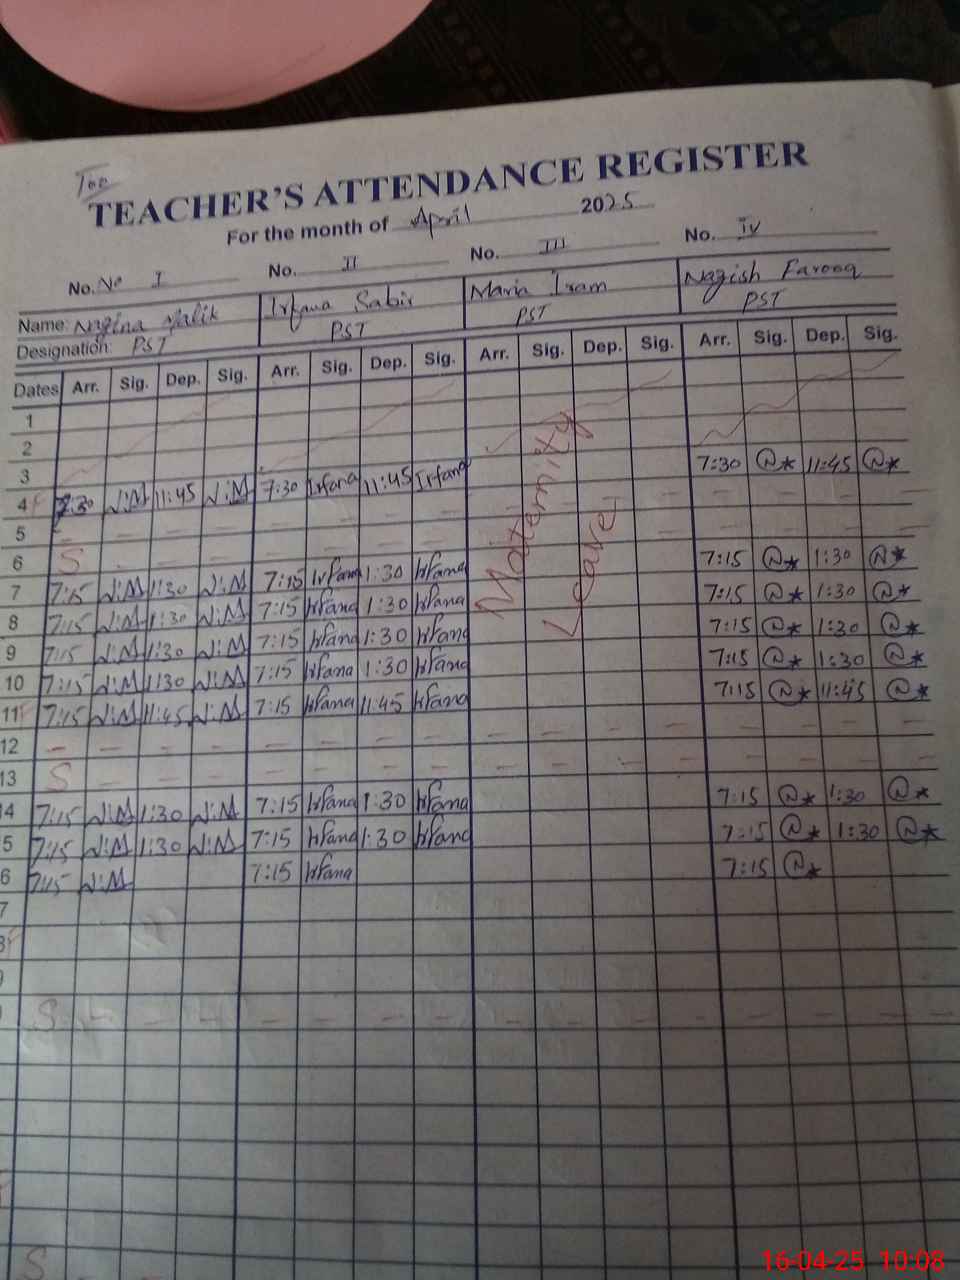 Too
TEACHER'S ATTENDANCE REGISTER
For the month of April 2025
No. No I No. II No. III No. IV
Name: Nazina Malik Irfana Sabir Maria Iram Nazish Farooq
Designation: PST PST PST PST
Dates Arr. Sig. Dep. Sig. Arr. Sig. Dep. Sig. Arr. Sig. Dep. Sig. Arr. Sig. Dep. Sig.
1
2
3
4 F 7:30 N:M 11:45 N:M 7:30 Irfana 11:45 Irfana 7:30 11:45
5 - - - - - - - - - - - -
6 S - - - - - - - - - - -
7 7:15 N:M 1:30 N:M 7:15 Irfana 1:30 Irfana 7:15 1:30
8 7:15 N:M 1:30 N:M 7:15 Irfana 1:30 Irfana 7:15 1:30
9 7:15 N:M 1:30 N:M 7:15 Irfana 1:30 Irfana 7:15 1:30
10 7:15 N:M 1:30 N:M 7:15 Irfana 1:30 Irfana 7:15 1:30
11 F 7:15 N:M 11:45 N:M 7:15 Irfana 11:45 Irfana 7:15 11:45
Maternity
Leave
12 - - - - - - - - - - - - - - - -
13 S - - - - - - - - - - - - - - -
4 7:15 N:M 1:30 N:M 7:15 Irfana 1:30 Irfana 7:15 1:30
5 7:15 N:M 1:30 N:M 7:15 Irfana 1:30 Irfana 7:15 1:30
6 7:15 N:M 7:15 Irfana 7:15
7
8 F
9
S - - - - - - - - - - - - - - -
S
16-04-25 10:08